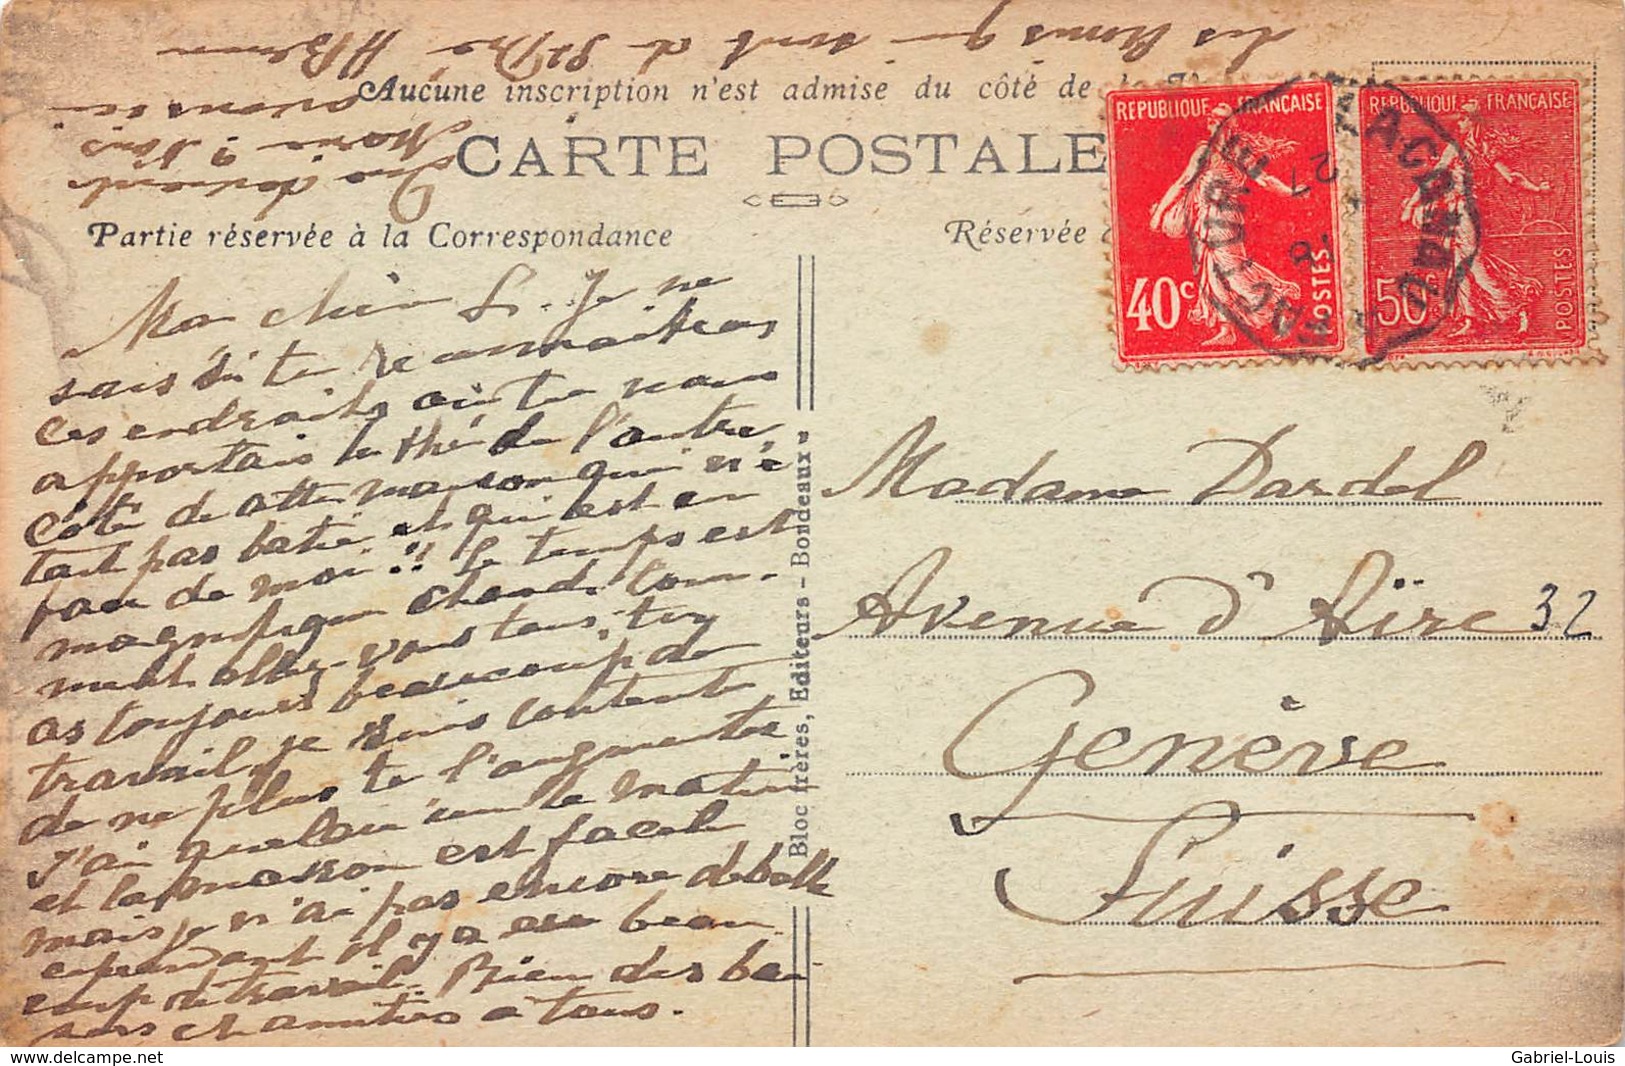 les noms qui sont de St André HBlanc
Que devient
Marie ? Nous
avons ici
Aucune inscription n'est admise du côté de
CARTE POSTALE
Partie réservée à la Correspondance
Réservée
REPUBLIQUE FRANÇAISE
40c
POSTES
REPUBLIQUE FRANÇAISE
50c
POSTES
FACTURE
27
18
Mon chien L. Je ne
sais si tu reconnaitras
ces endroits où tu nous
apportais le thé de l'autre
côté de cette maison qui n'é
tait pas batie et qui est en
face de moi !! le temps est
magnifique chaud. Com-
ment allez-vous tous, toi
as toujours beaucoup de
travail, je suis contente
de ne plus te l'augmenter
J'ai quelqu'un le matin
et la maison est facile
mais je n'ai pas encore déballé
cependant il y a eu beau
coup de travail. Bien des bai
sers et amitiés à tous.
Bloc frères, Editeurs - Bordeaux
Madame Dardel
Avenue d'Aïre 32
Genève
Suisse
www.delcampe.net
Gabriel-Louis